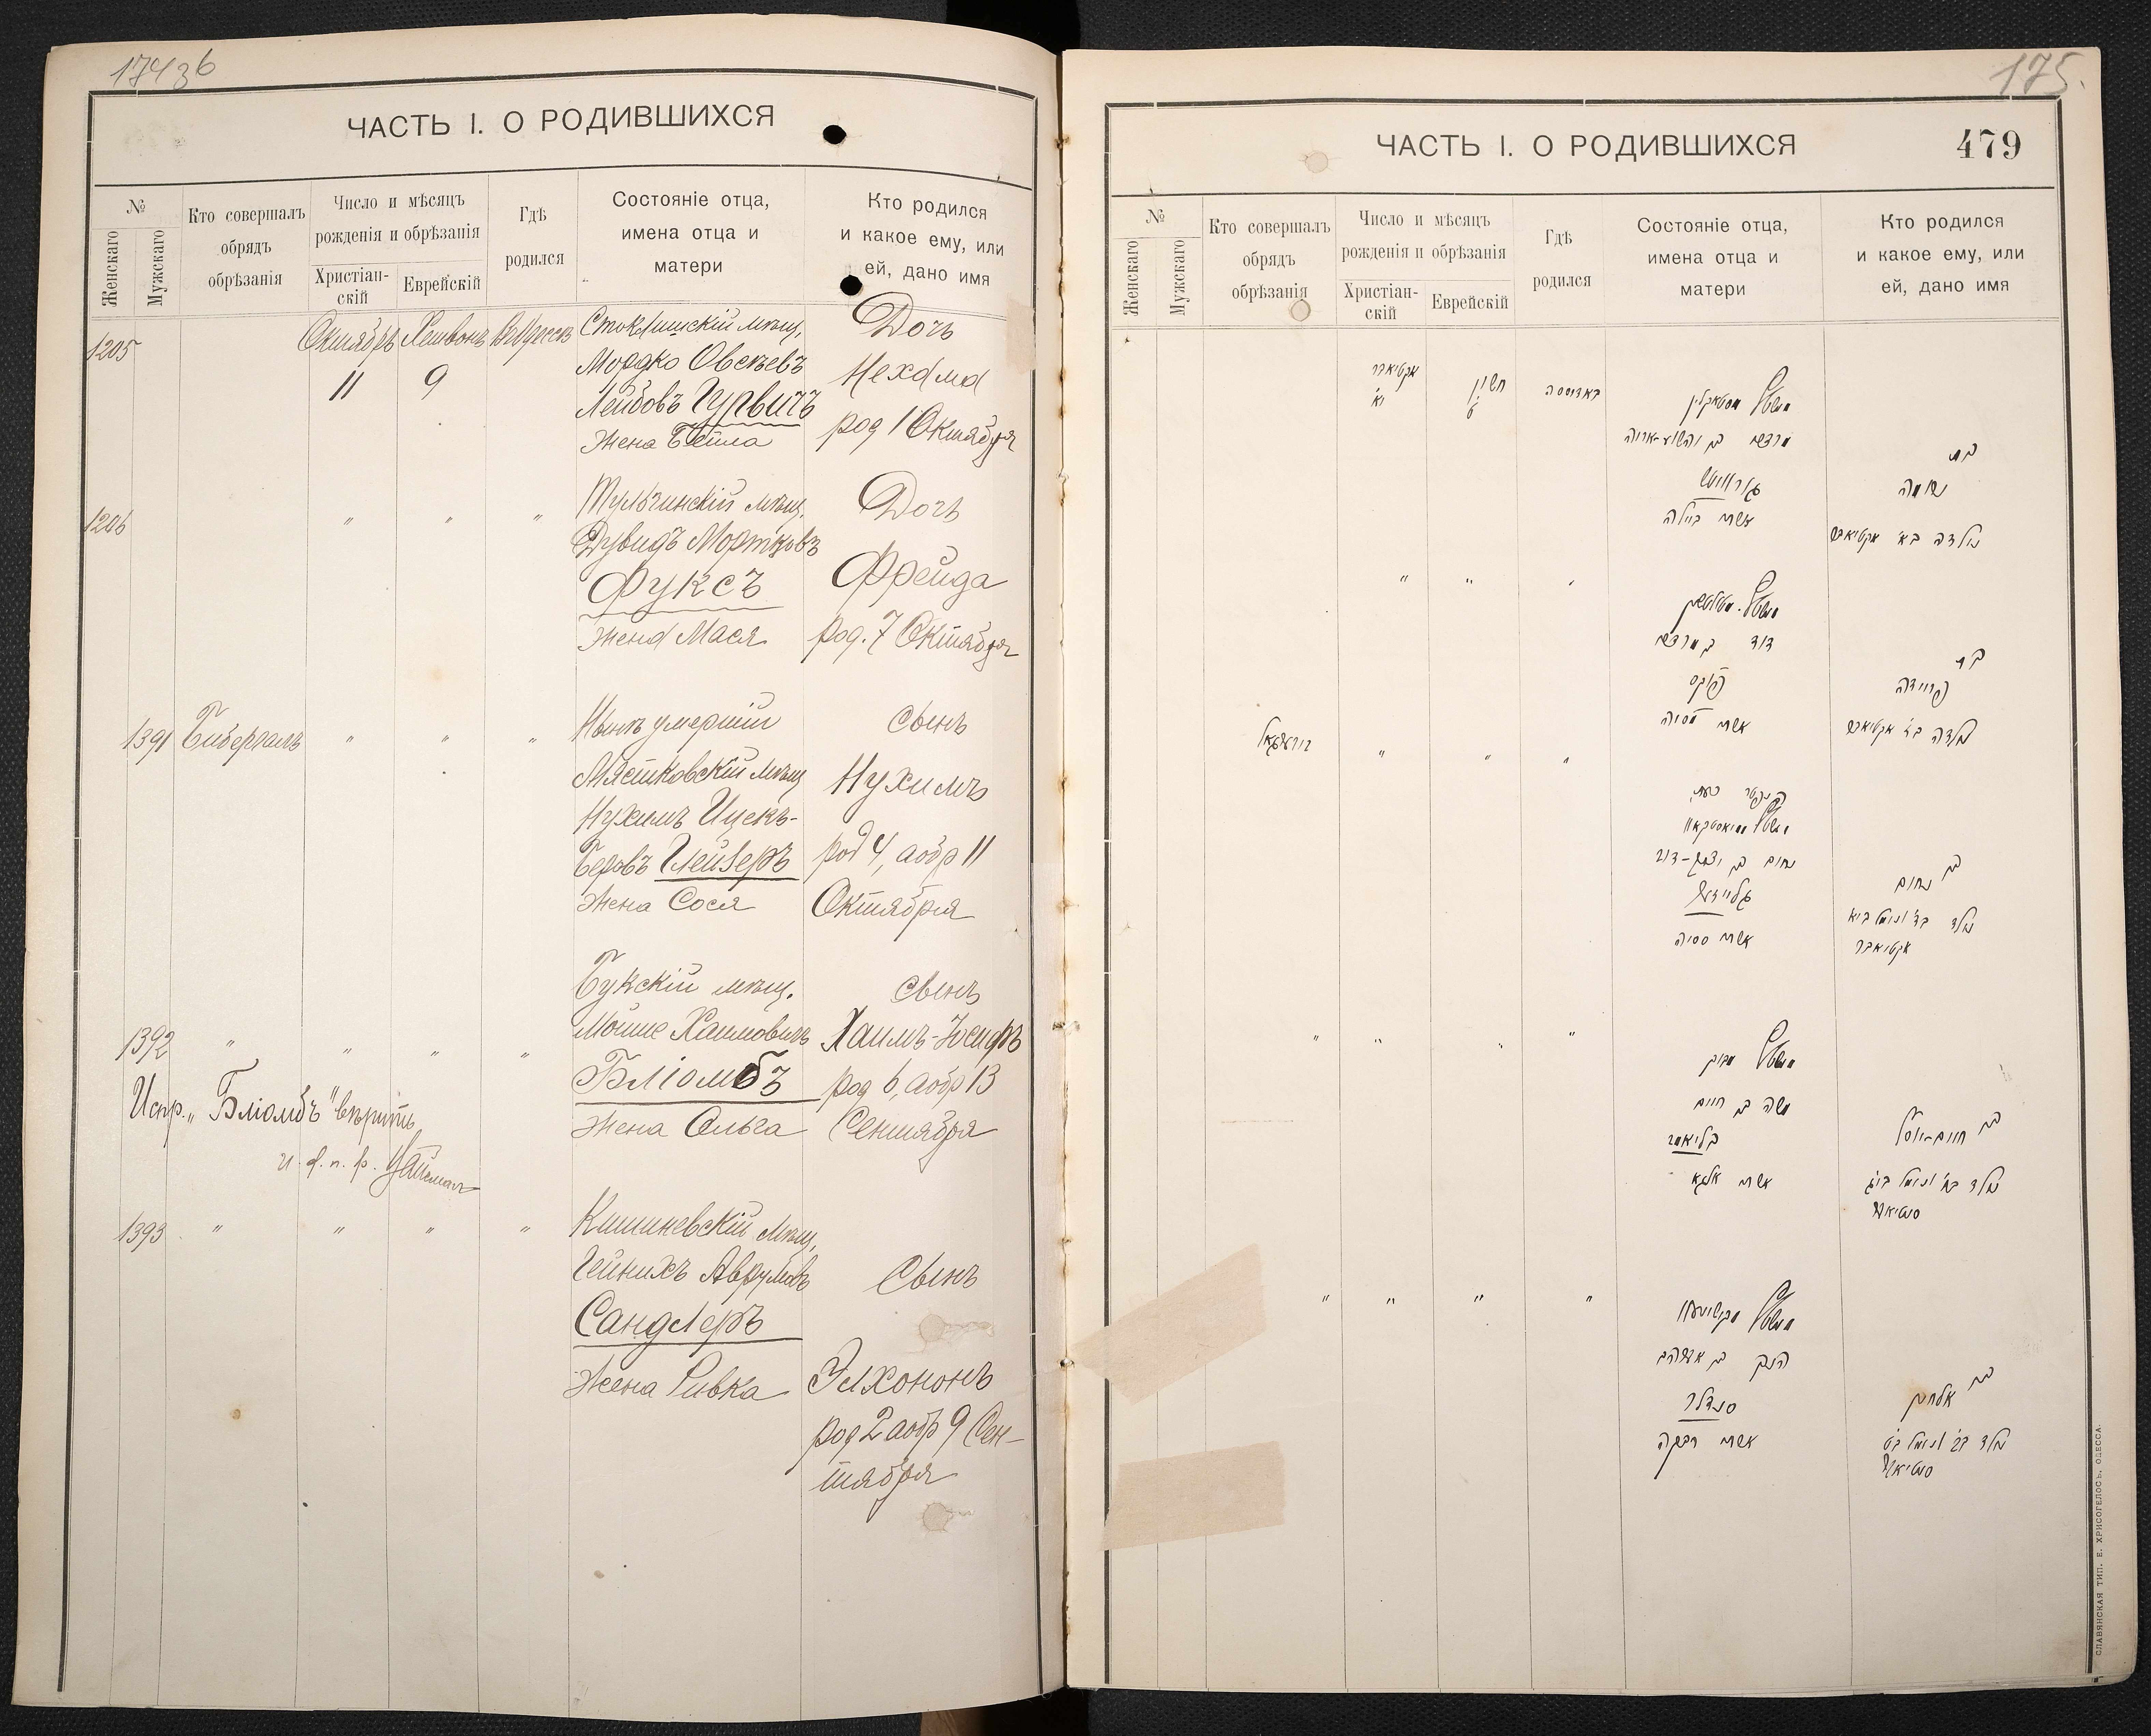 174 зб
ЧАСТЬ I. О РОДИВШИХСЯ
№
Женскаго
Мужскаго
Кто совершалъ
обрядъ
обрѣзанія
Число и мѣсяцъ
рожденія и обрѣзанія
Христіан-
скій
Еврейскій
Гдѣ
родился
Состояніе отца,
имена отца и
матери
Кто родился
и какое ему, или
ей, дано имя
1205
Октябрь Хешвонъ ВъОдессѣ
11 9
Стоклишскій мѣщ.
Мордко Овсѣевъ
Лейбовъ Гурвичъ
Жена Бейла
Дочь
Нехама
род 1 Октября
1206 " " "
Тульчинскій мѣщ.
Дувидъ Мортковъ
Фуксъ
Жена Мася
Дочь
Фрейда
род. 7 Октября
1391 Бибергалъ " " "
Нынѣ умершій
Мястковскій мѣщ
Нухимъ Ицекъ-
Беровъ Глейзеръ
Жена Сося
Сынъ
Нухимъ
род 4, а обр 11
Октября
1392 " " " "
Букскій мѣщ.
Мойше Хаимовичъ
Бліомбъ
Жена Ольга
Сынъ
Хаимъ-Іосифъ
род 6, а обр 13
Сентября
Испр. „Бліомбъ" вѣрить
и. д. п. р.
1393 " " " "
Кишиневскій мѣщ.
Гейнихъ Аврумовъ
Сандлеръ
Жена Ривка
Сынъ
Элхононъ
род 2 а обр 9 Сен-
тября
175.
ЧАСТЬ I. О РОДИВШИХСЯ
479
№
Женскаго
Мужскаго
Кто совершалъ
обрядъ
обрѣзанія
Число и мѣсяцъ
рожденія и обрѣзанія
Христіан-
скій
Еврейскій
Гдѣ
родился
Состояніе отца,
имена отца и
матери
Кто родился
и какое ему, или
ей, дано имя
אקטיאבר
יא
חשון
ט
באדעסה
גורוויטש
אשתו ביילה
בת
נחמה
נולדה בא' אקטיאבר
" " "
דוד בן מרדכי
פוקס
אשתו מסיה
בת
פריידה
נולדה בז' אקטיאבר
" " "
נחום בן יצחק-דוב
גלייזער
אשתו סוסיה
בן
נחום
נולד בד' ונימול ביא
אקטיאבר
" " " "
משה בן חיים
בליאמב
אשתו אלגא
בן
חיים-יוסף
נולד בו' ונימול ביג
סנטיאבר
" " " "
הניך בן אברהם
סנדלר
אשתו רבקה
בן
אלחנן
נולד בב' ונימול בט'
סנטיאבר
СЛАВЯНСКАЯ ТИП. Е. ХРИСОГЕЛОСЪ. ОДЕССА.